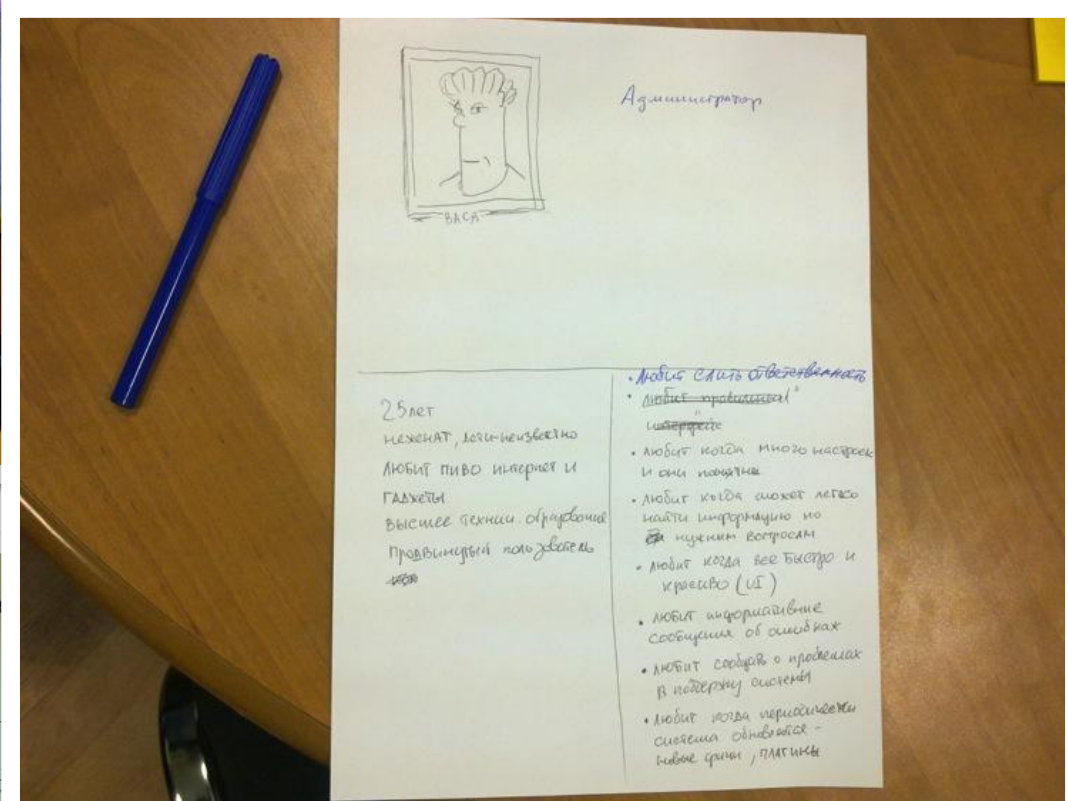 ВАСЯ
Администратор
25 лет
неженат, дети-неизвестно
любит пиво интернет и
гаджеты
высшее технич. образование
продвинутый пользователь
• любит слить ответственность
• любит правильный"
"интерфейс
• любит когда много настроек
и они понятны
• любит когда может легко
найти информацию по
нужним вопросам
• любит когда все быстро и
красиво (UI)
• любит информативние
сообщения об ошибках
• любит сообщать о проблемах
в поддержку системы
• любит когда периодически
система обновляется -
новые фичи, плагины